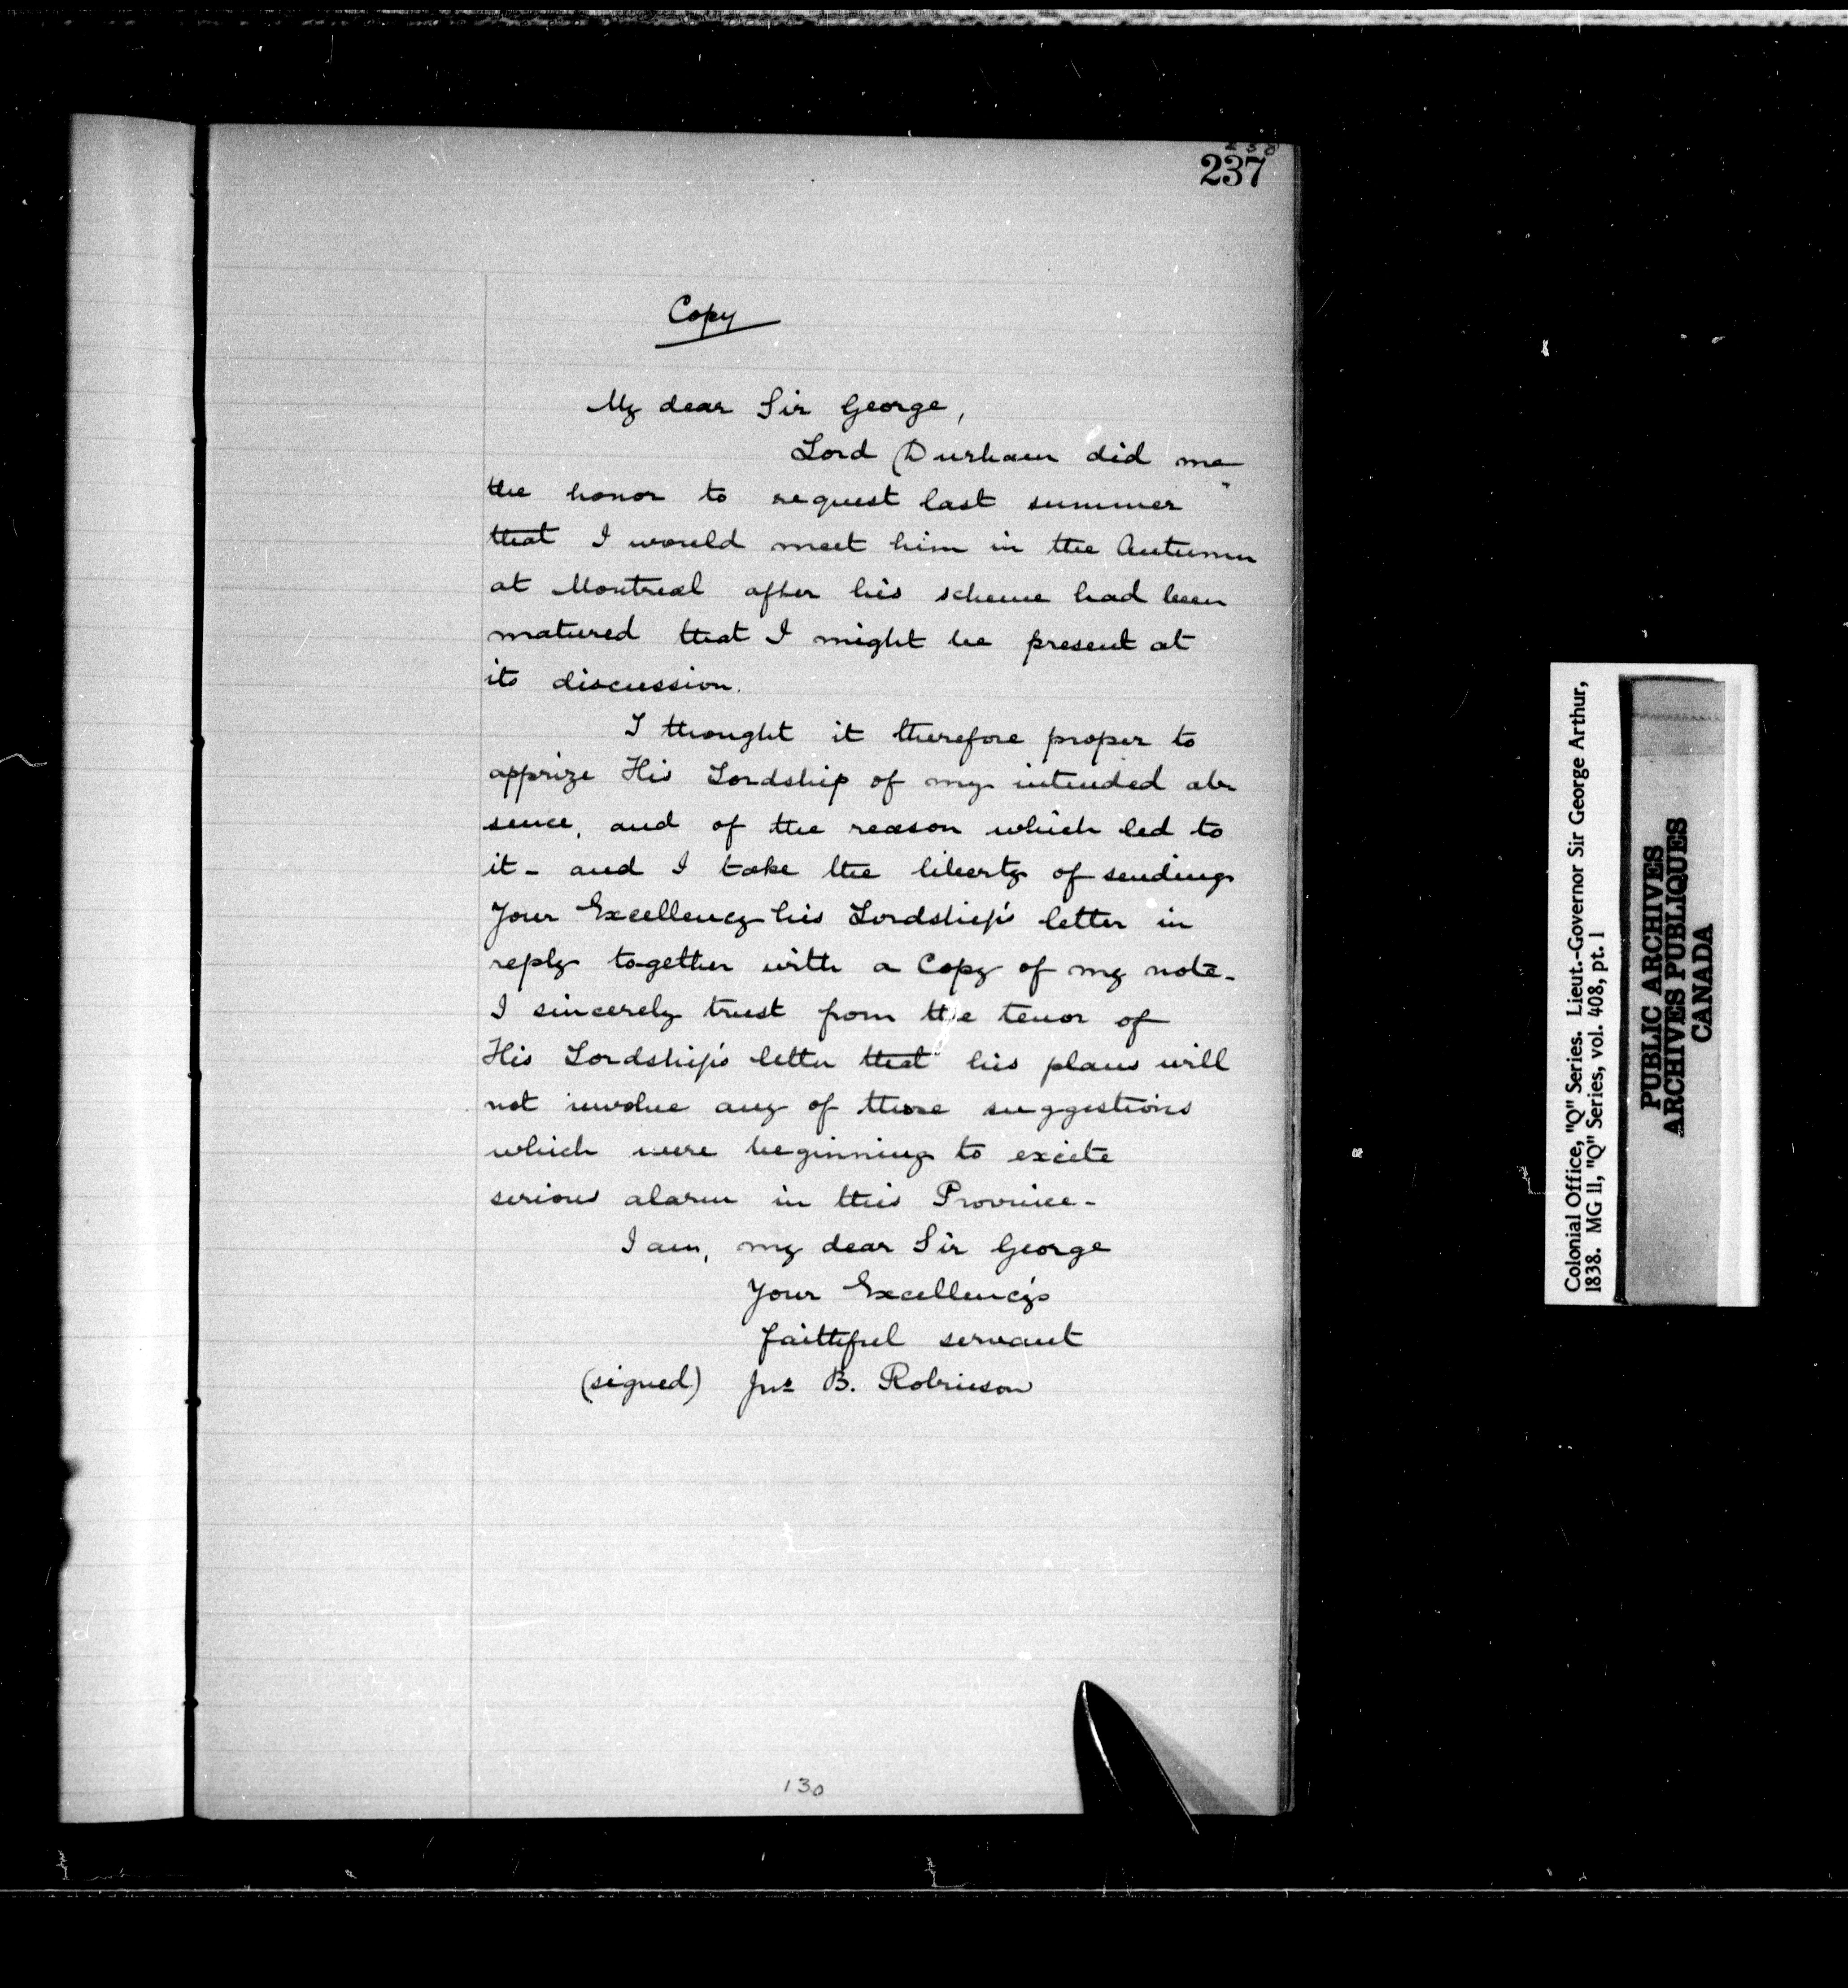 237
Copy
My dear Sir George,
Lord Durham did me
the honor to request last summer
that I would meet him in the Autumn
at Montreal after his scheme had been
matured that I might be present at
its discussion.
I thought it therefore proper to
apprize His Lordship of my intended ab-
sence, and of the reason which led to
it - and I take the liberty of sending
Your Excellency his Lordship's letter in
reply together with a Copy of my note-
I sincerely trust from the tenor of
His Lordship's letter that his plans will
not involve any of those suggestions
which were beginning to excite
serious alarm in this Province-
I am, my dear Sir George
Your Excellency's
faithful servant
(signed) Jno B. Robinson
130
Colonial Office, "Q" Series. Lieut.-Governor Sir George Arthur,
1838. MG 11, "Q" Series, vol. 408, pt. 1
PUBLIC ARCHIVES
ARCHIVES PUBLIQUES
CANADA